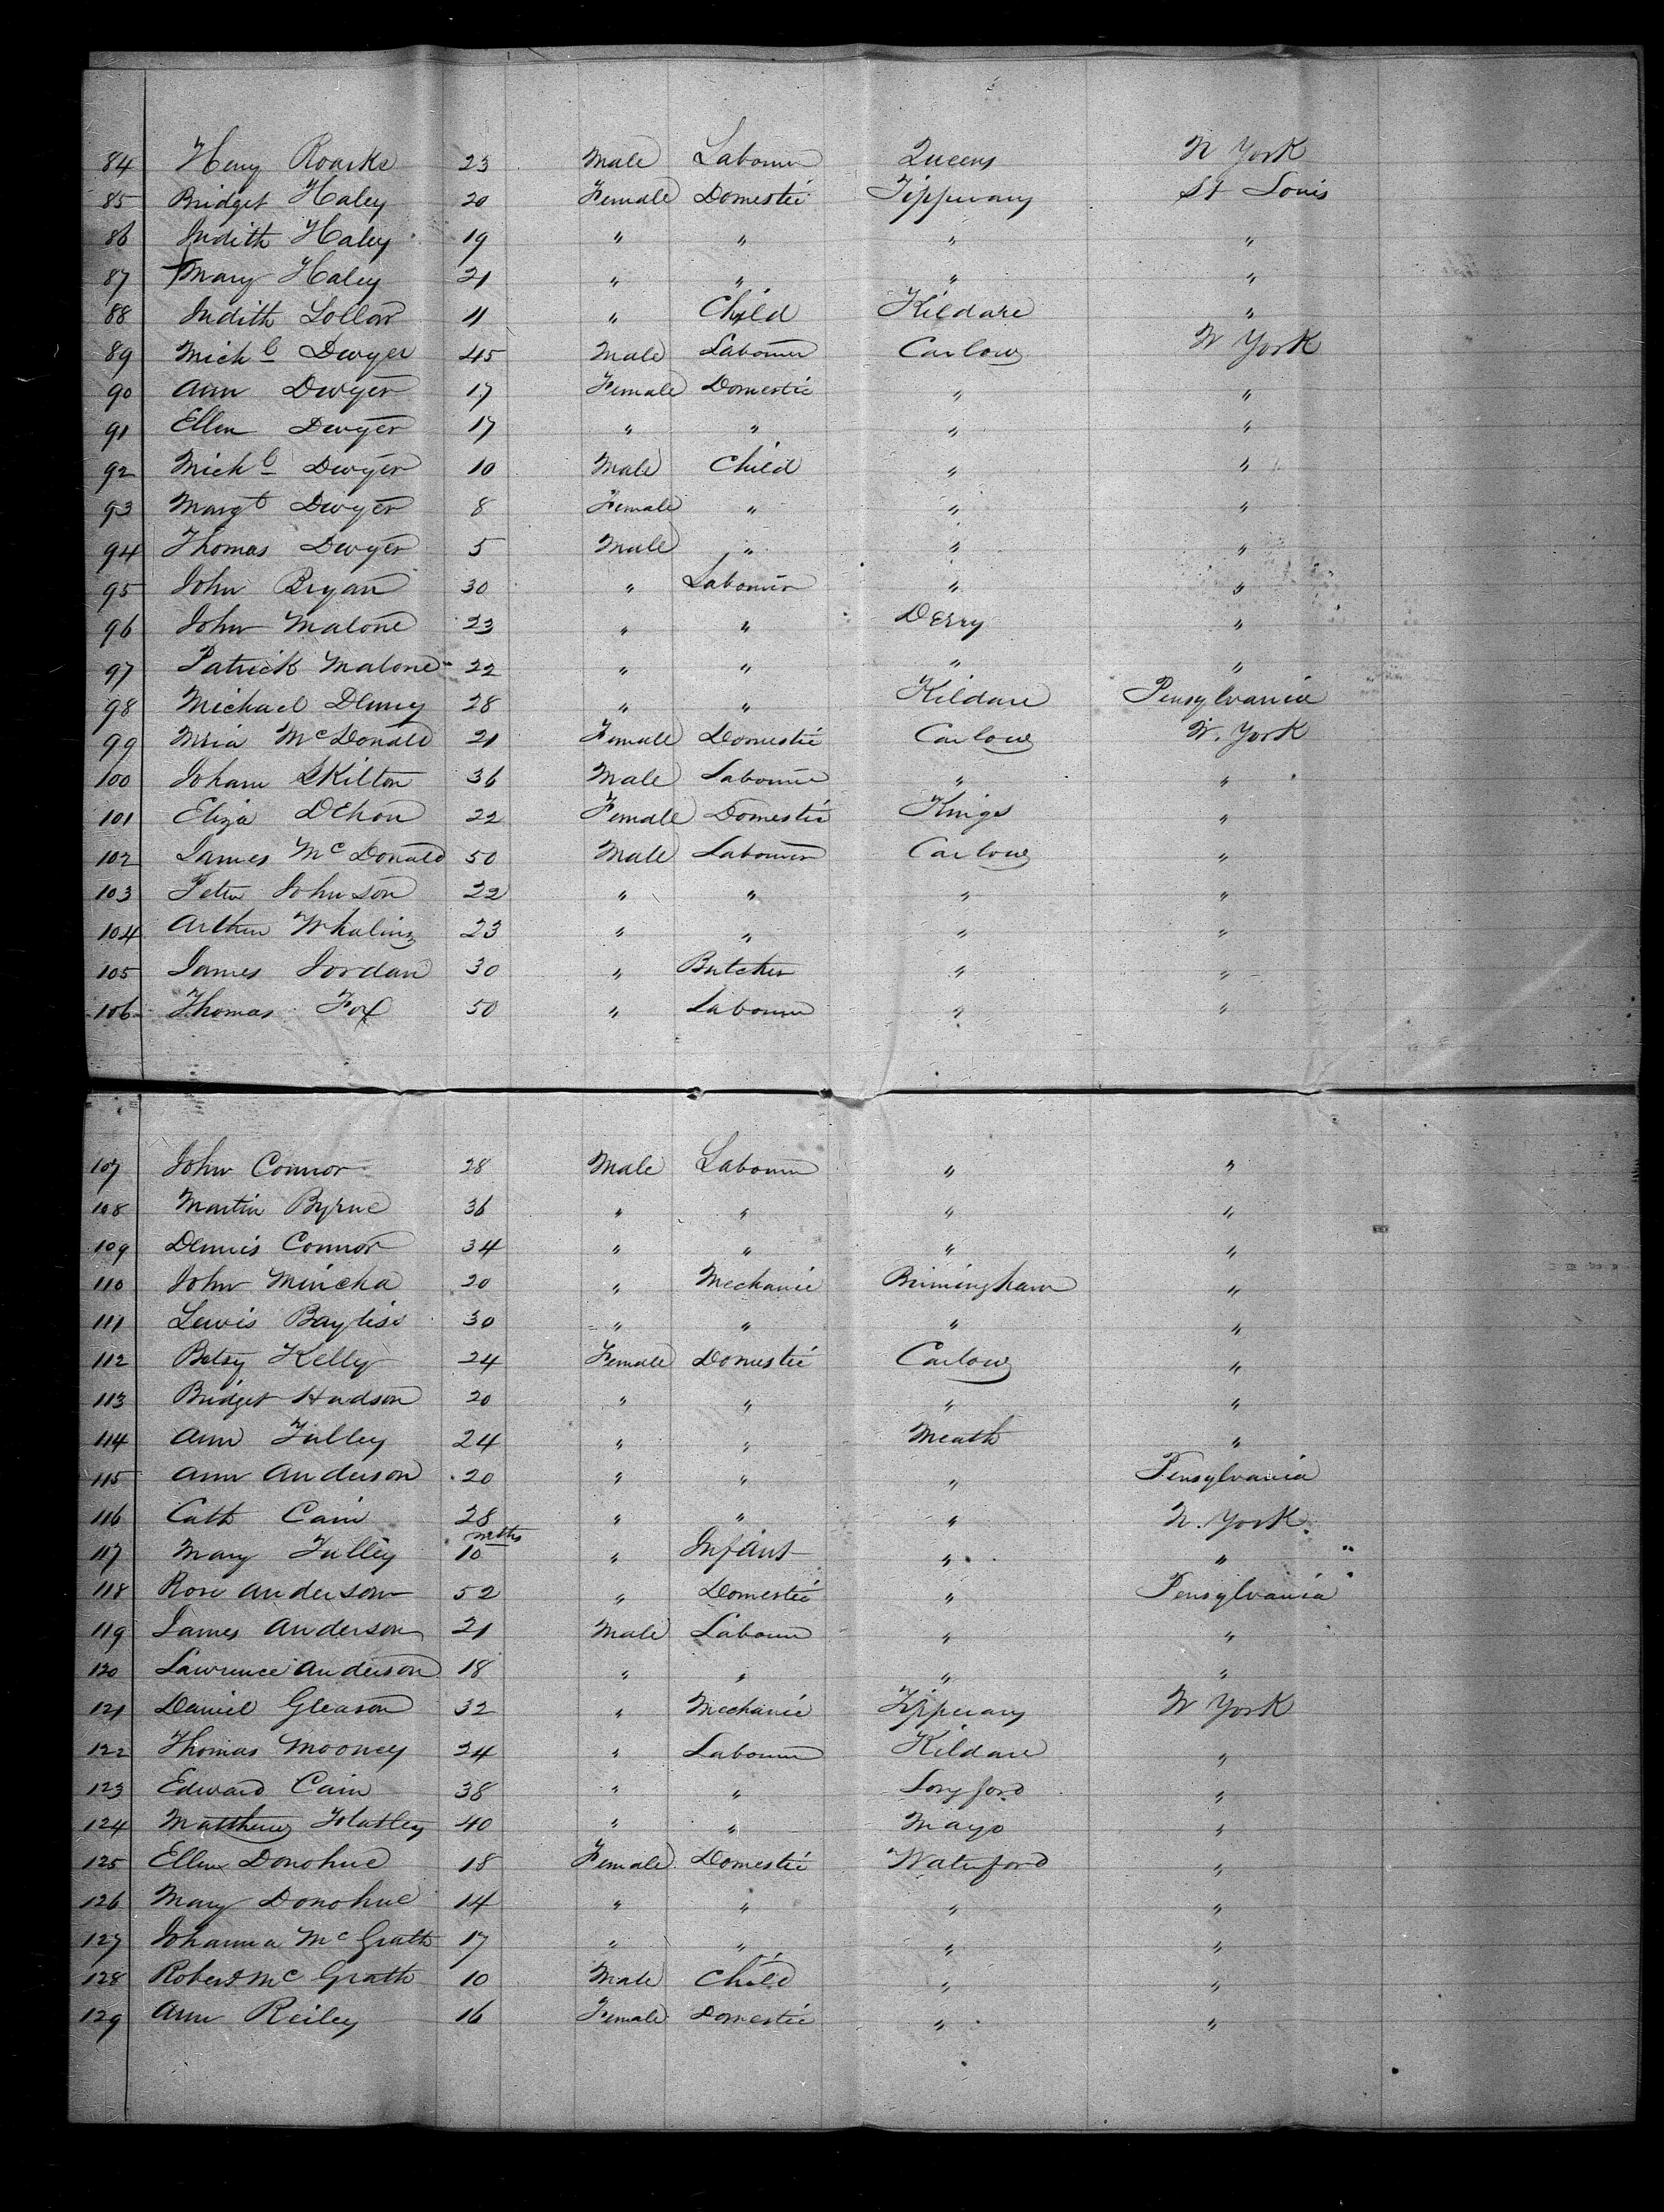 84 Heny Roarke 23 Male Labourer Queens N York
85 Bridget Haley 20 Female Domestic Tipperary St Louis
86 Judith Haley 19 " " " "
87 Mary Haley 21 " " " "
88 Judith Lollor 11 " Child Kildare "
89 Michl Dwyer 45 Male Labourer Carlow N York
90 Ann Dwyer 17 Female Domestic " "
91 Ellen Dwyer 17 " " " "
92 Michl Dwyer 10 Male Child " "
93 Margt Dwyer 8 Female " " "
94 Thomas Dwyer 5 Male " " "
95 John Bryan 30 " Labourer " "
96 John Malone 23 " " Derry "
97 Patrick Malone 22 " " " "
98 Michael Denny 28 " " Kildare Pensylvania
99 Mria McDonald 21 Female Domestic Carlow N. York
100 Joham Skilton 36 Male Labourer " "
101 Eliza Dehon 22 Female Domestic Kings "
102 James McDonald 50 Male Labourer Carlow "
103 Peter Johnson 22 " " " "
104 Arthur Whaling 23 " " " "
105 James Jordan 30 " Butcher " "
106 Thomas Fox 50 " Labourer " "
107 John Connor 28 Male Labourer " "
108 Martin Byrne 36 " " " "
109 Dennis Connor 34 " " " "
110 John Mincha 20 " Mechanic Birmingham "
111 Lewis Baylise 30 " " " "
112 Betsy Kelly 24 Female Domestic Carlow "
113 Bridget Hudson 20 " " " "
114 Ann Tulley 24 " " Meath "
115 Ann Anderson 20 " " " Pensylvania
116 Cath Cain 28 " " " N. York
117 Mary Tulley 10 mths " Infant " "
118 Rose Anderson 52 " Domestic " Pensylvania
119 James Anderson 21 Male Labourer " "
120 Lawrence Anderson 18 " " " "
121 Daniel Gleason 32 " Mechanic Tipperary N York
122 Thomas Mooney 24 " Labourer Kildare "
123 Edward Cain 38 " " Longford "
124 Matthew Flatley 40 " " Mayo "
125 Ellen Donohue 18 Female Domestic Waterford "
126 Mary Donohue 14 " " " "
127 Johanna McGrath 17 " " " "
128 Robert McGrath 10 Male Child " "
129 Ann Reiley 16 Female Domestic " "